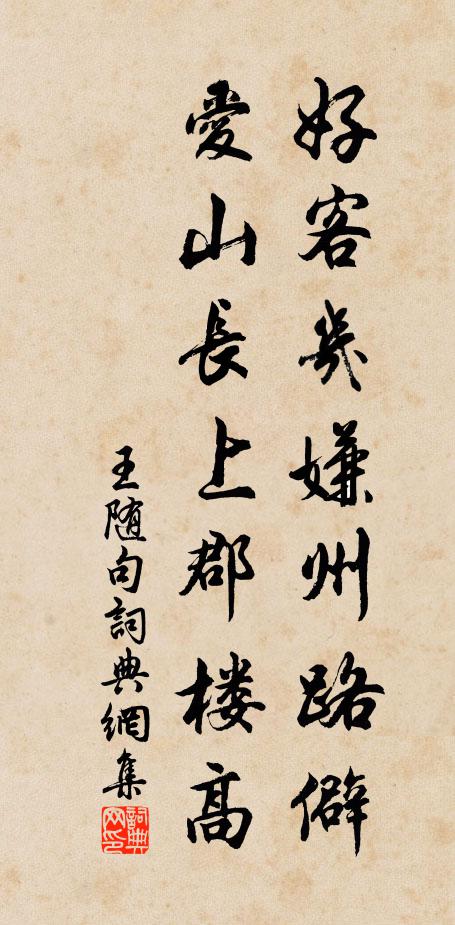 好客幾嫌州路僻
愛山長上郡楼高
王随句詞典網集
詞典网印